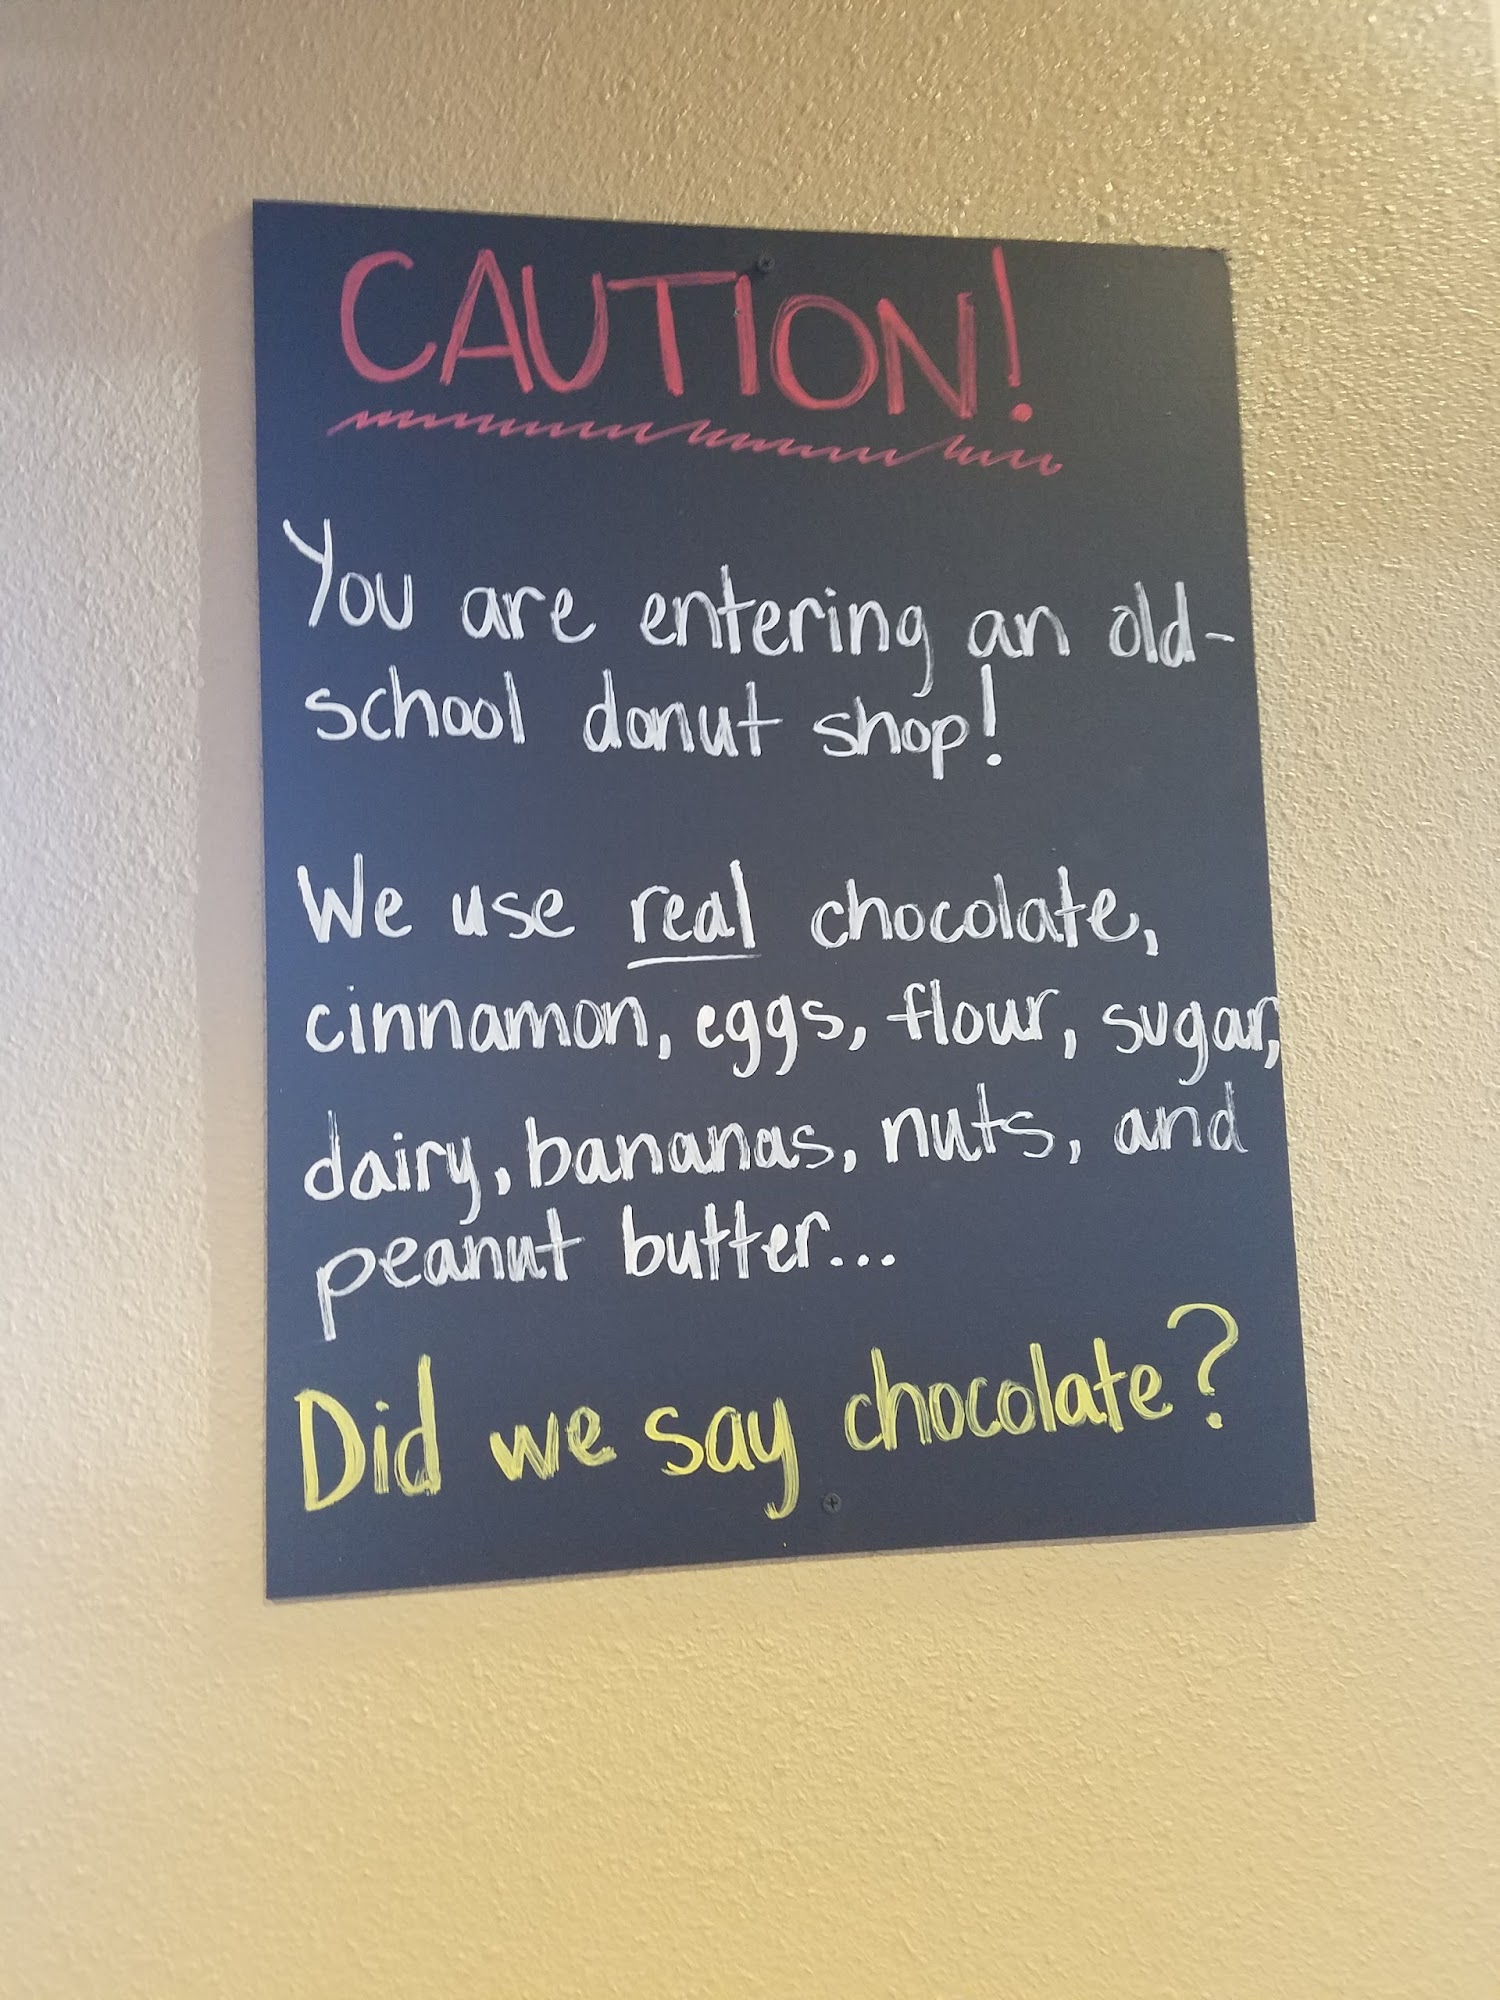 CAUTION!
You are entering an old-
school donut shop!
We use real chocolate,
cinnamon, eggs, flour, sugar,
dairy, bananas, nuts, and
peanut butter...
Did we say chocolate?